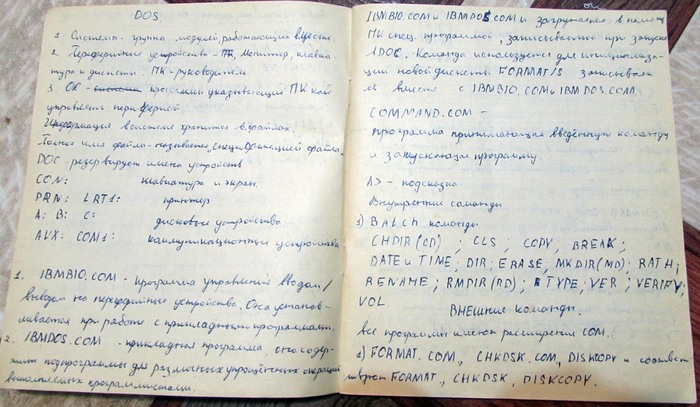 DOS.
1 Система - группа модулей, работающих вместе.
2. Периферийные устройства - ПК, монитор, клавиа-
тура и дискеты. ПК - руководитель.
3. ОС - программа указывающий ПК как
управлять периферией.
Информация в системе хранится в файлах.
Полное имя файла - называется, спецификацией файла.
ДОС - резервирует имена устройств
CON: клавиатура и экран.
PRN: LRT1: принтер
A: B: C: дисковые устройства.
AUX: COM1: коммуникационные устройства
1. IBMBIO.COM - программа управления вводом/
выводом на перефирийные устройства. Она устанав-
ливается при работе с прикладными программами.
2. IBMDOS.COM - прикладная программа, она содер-
жит подпрограммы для различных упрощённых операций
выполняемых программистами.
IBMBIO.COM и IBMDOS.COM и загружается в память
ПК спец. программой, записываемой при запуске
ДОС. Команда используется для инициализа-
ции новой дискеты. FORMAT/S записывает
её вместе с IBMBIO.COM и IBMDOS.COM.
COMMAND.COM -
программа принимающая введённую команду
и запускающая программу.
A> - подсказка
Внутренние команды
1) BATCH команды
CHDIR(CD) ; CLS ; COPY ; BREAK ;
DATE и TIME ; DIR ; ERASE ; MKDIR(MD) ; RATH ;
RENAME ; RMDIR(RD) ; TYPE ; VER ; VERIFY ;
VOL
ВНЕШНИЕ КОМАНДЫ.
все программы имеют расширение COM.
1) FORMAT.COM, CHKDSK.COM, DISKCOPY и соответс
твуют FORMAT., CHKDSK, DISKCOPY.